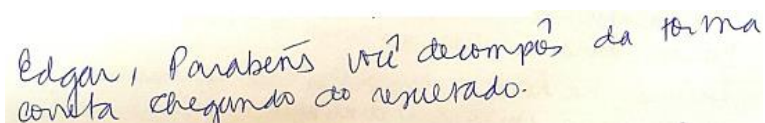 Edgar, Parabéns você decompôs da forma
correta chegando ao resultado.